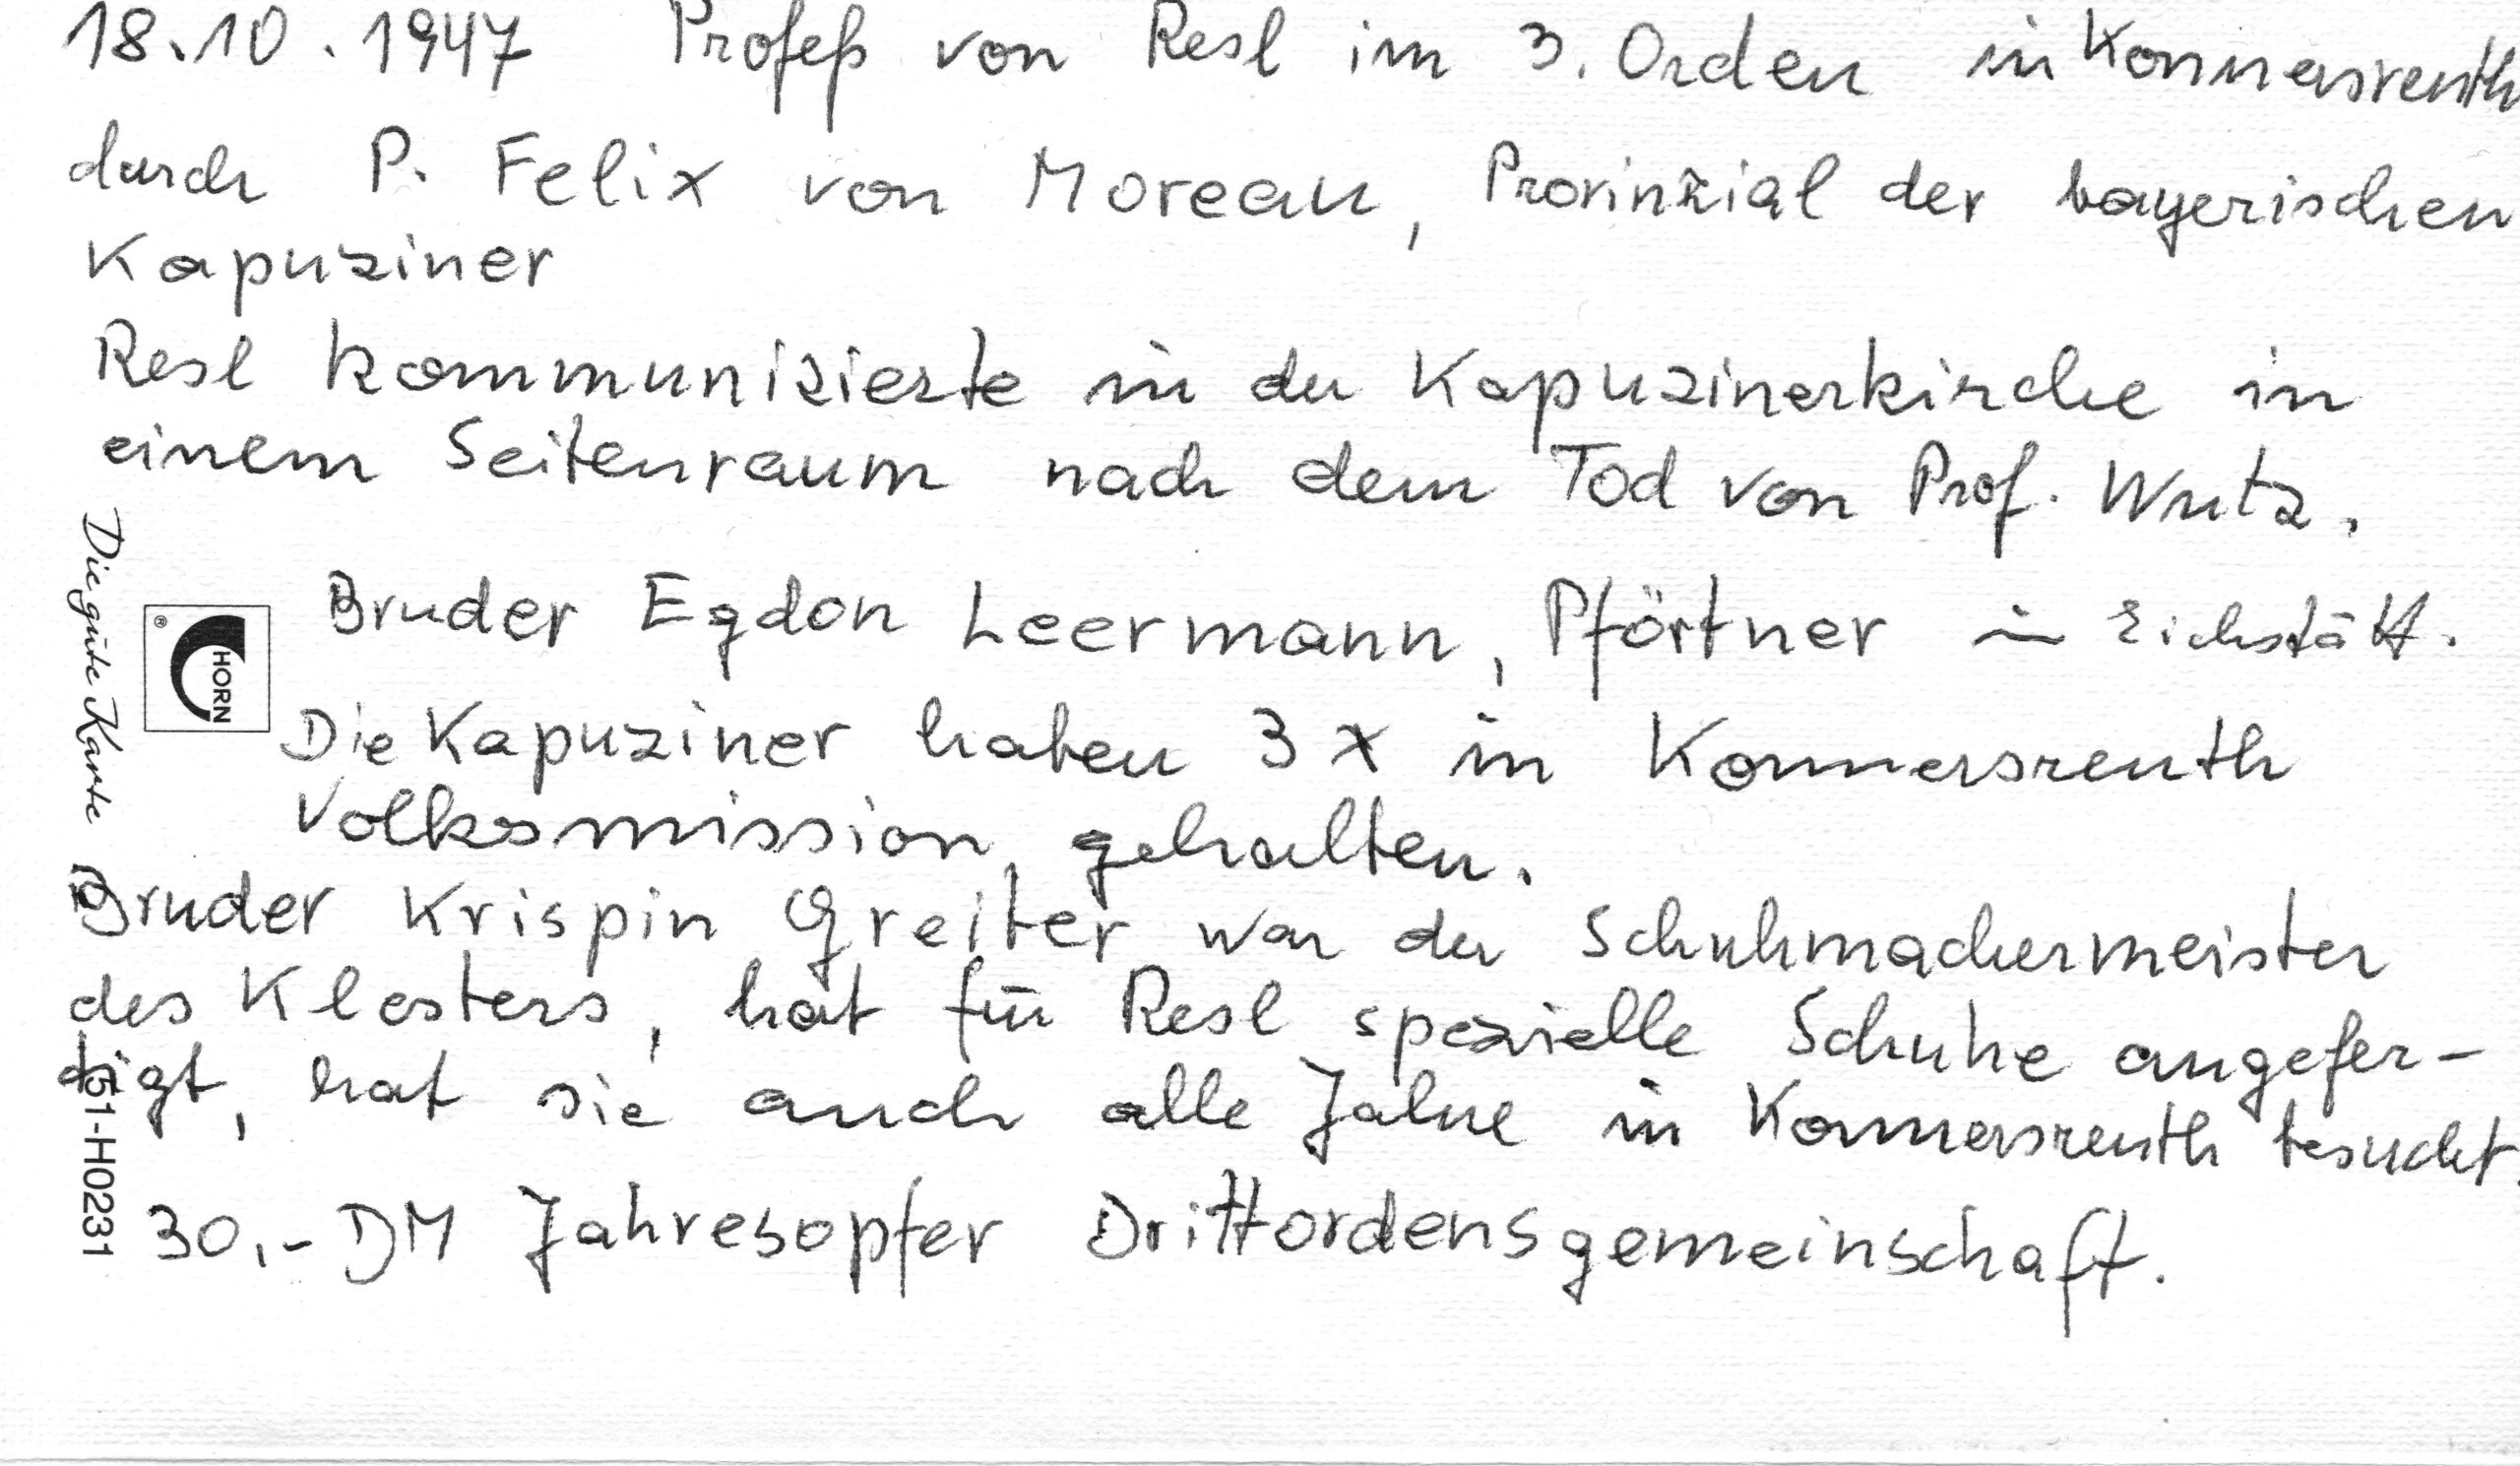 18.10.1947 Profeß von Resl im 3. Orden in Konnersreuth
durch P. Felix von Moreau, Provinzial der bayerischen
Kapuziner
Resl kommunizierte in der Kapuzinerkirche in
einem Seitenraum nach dem Tod von Prof. Wutz.
Bruder Egdon Leermann, Pförtner in Eichstätt.
Die Kapuziner haben 3 x in Konnersreuth
Volksmission gehalten.
Bruder Krispin Greiter war der Schuhmachermeister
des Klosters, hat für Resl spezielle Schuhe angefer-
tigt, hat sie auch alle Jahre in Konnersreuth besucht.
30,- DM Jahresopfer Drittordensgemeinschaft.
Die gute Karte
HORN
®
51-H0231